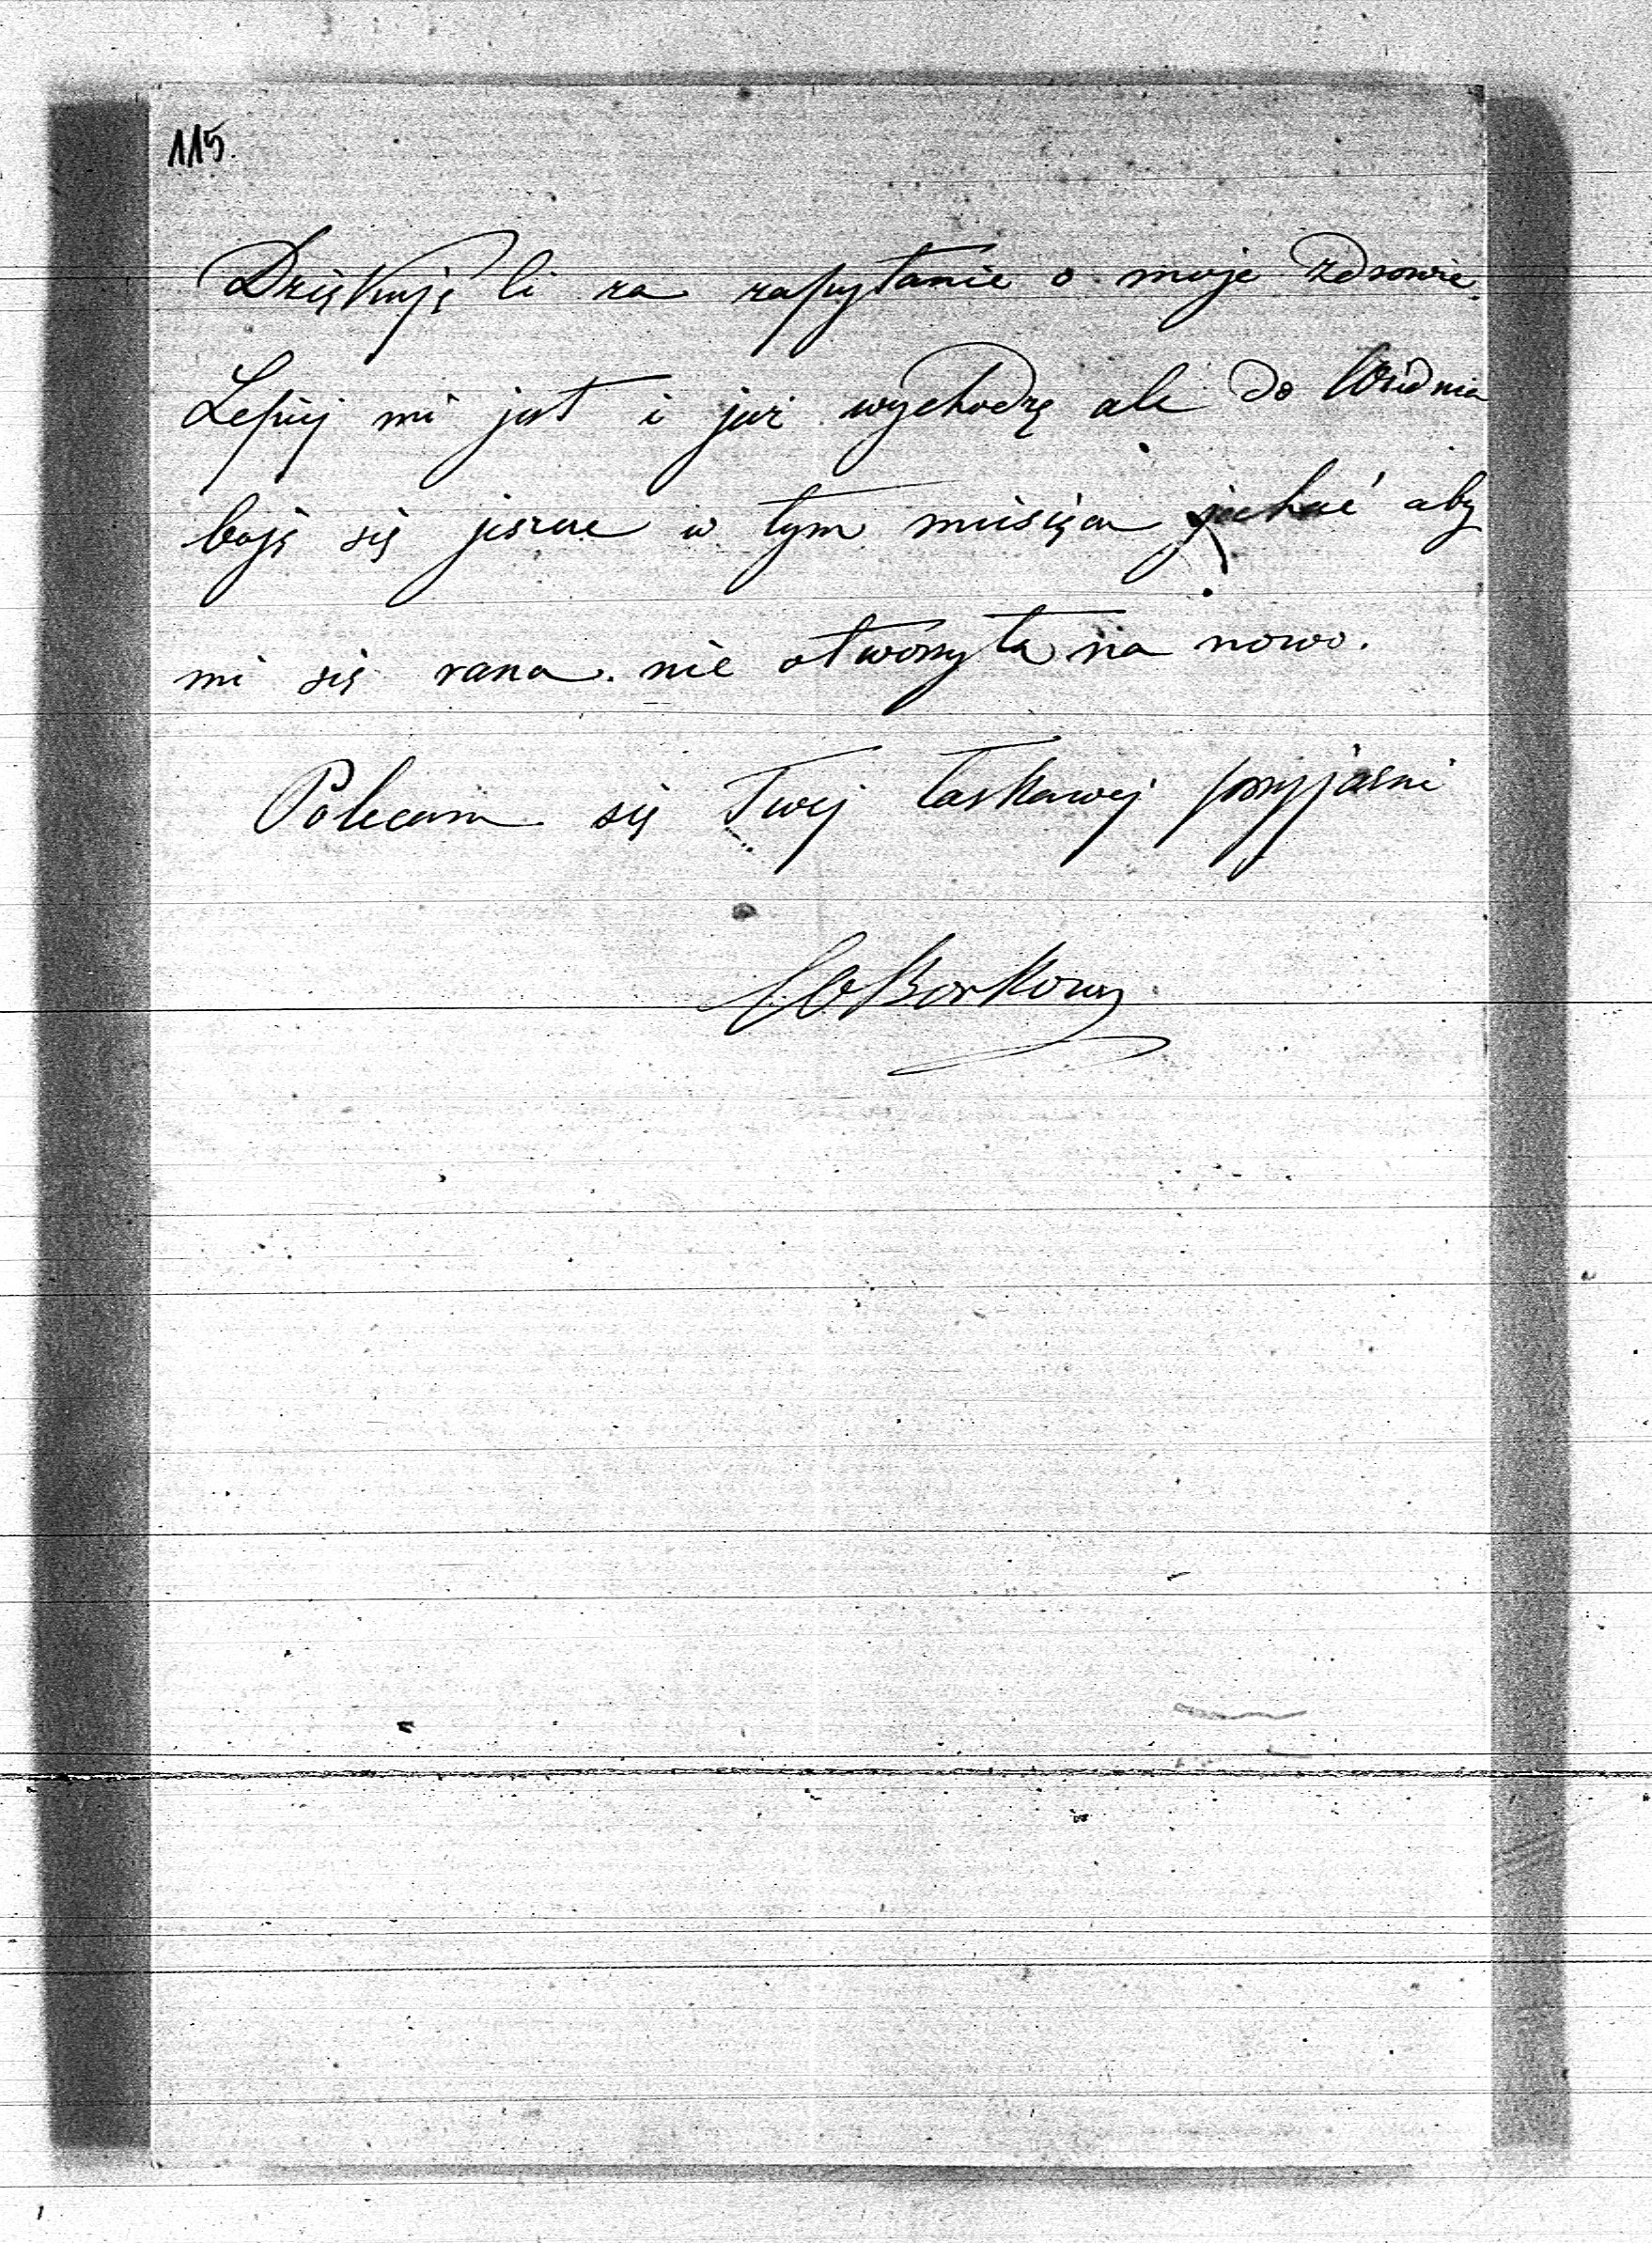 115.
Dziękuję Ci za zapytanie o moje zdrowie.
Lepiej mi jest i już wychodzę ale do Wiednia
boję się jeszcze w tym miesiącu jechać aby
mi się rana nie otworzyła na nowo.
Polecam się Twej łaskawej przyjaźni
WBorkows